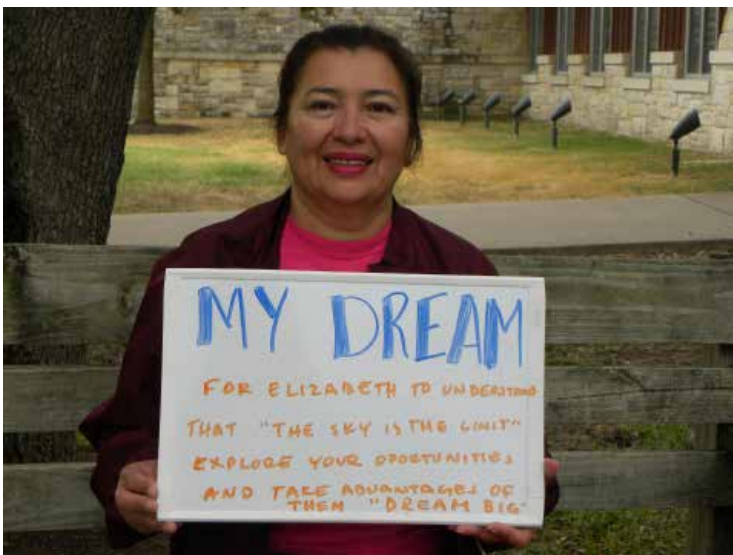 MY DREAM
FOR ELIZABETH TO UNDERSTAND
THAT "THE SKY IS THE LIMIT"
EXPLORE YOUR OPORTUNITIES
AND TAKE ADVANTAGES OF
THEM "DREAM BIG"